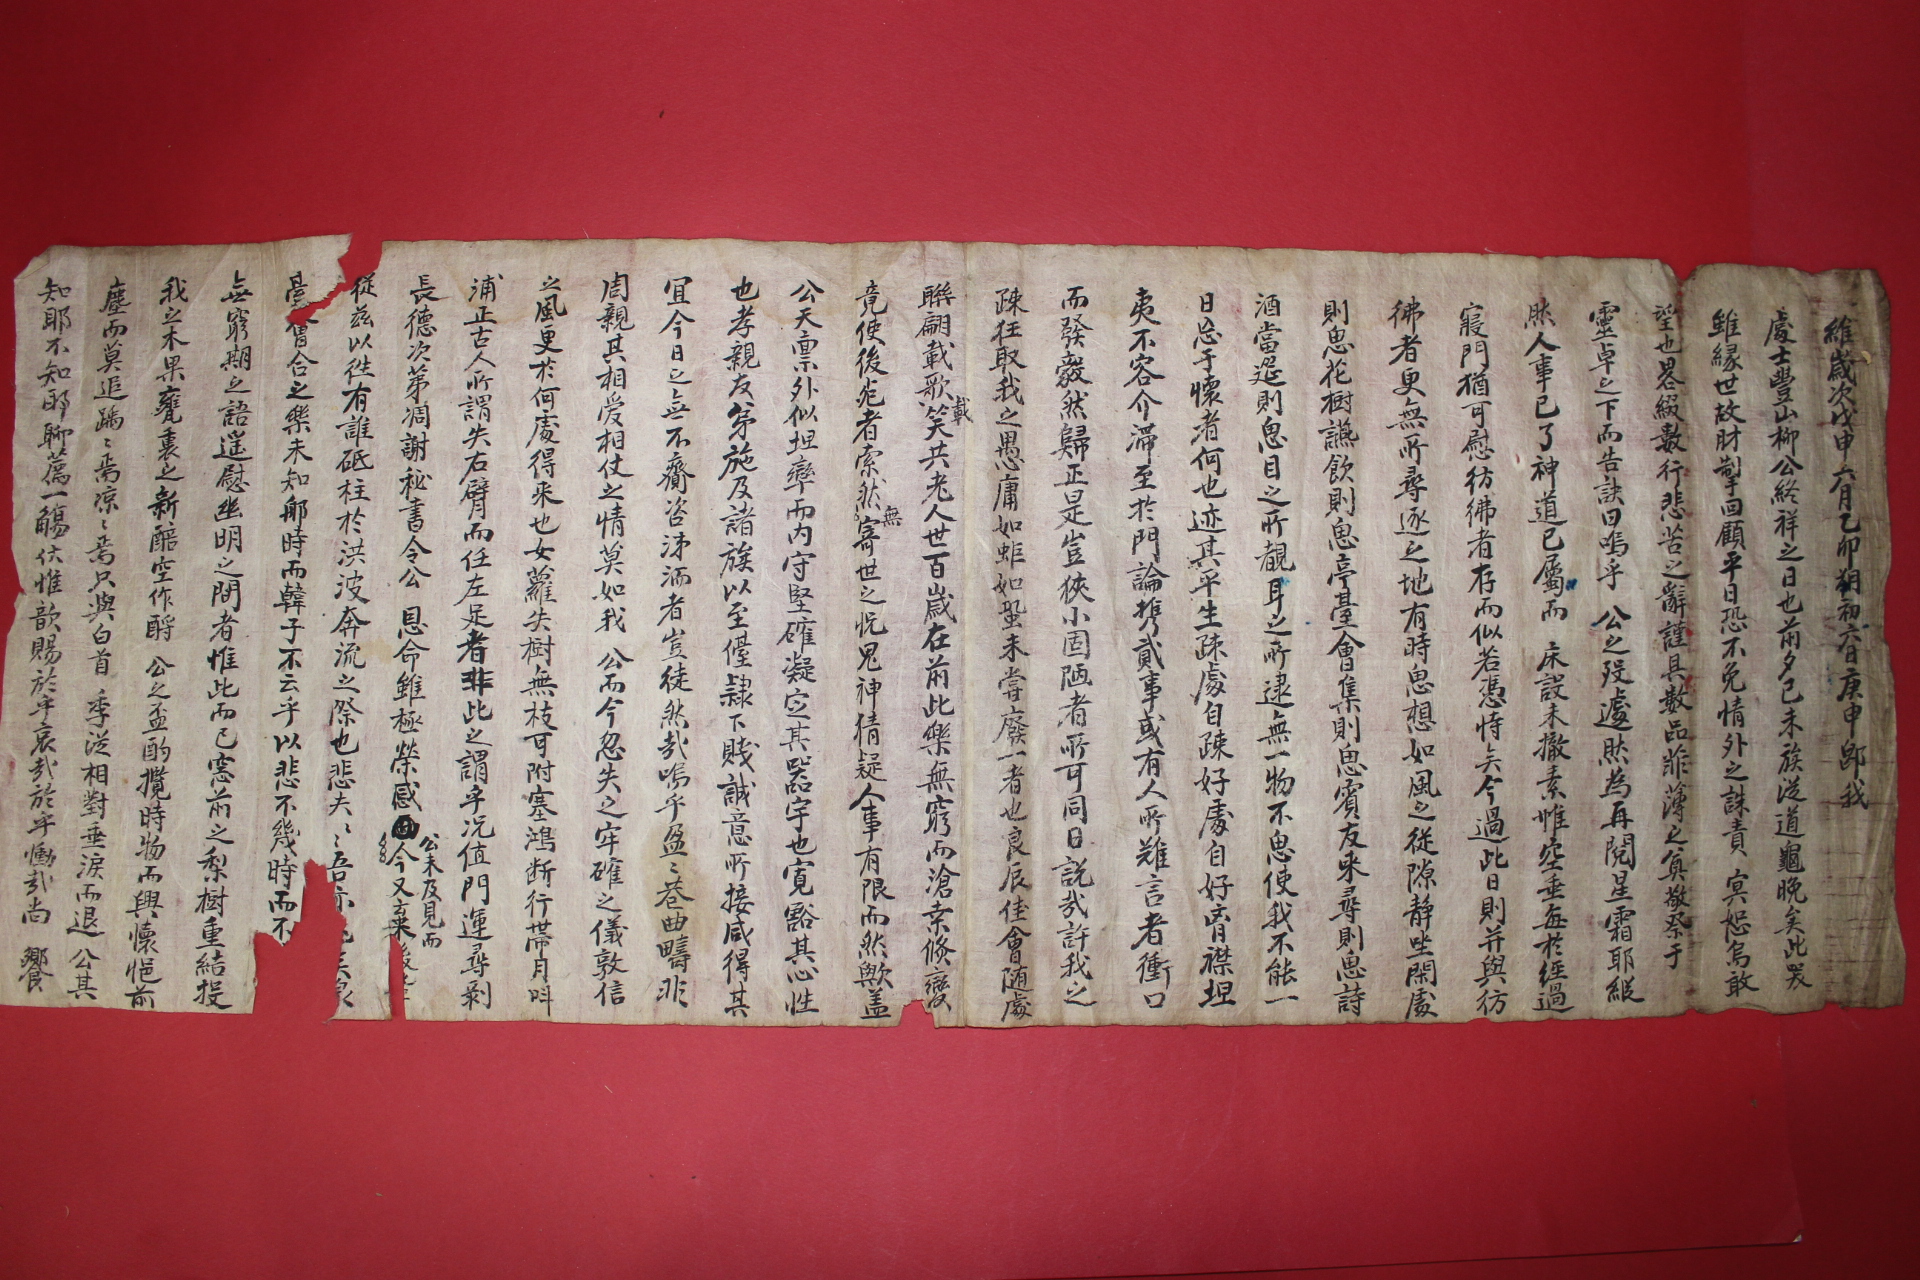 維歲次戊申六月乙卯朔初六日庚申即我
處士豐山柳公終祥之日也前夕己未族從道龜晚矣此哭
雖緣世故肘掣回顧平日恐不免情外之誅責冥恕烏敢
望也畧綴數行悲苦之辭謹具數品菲薄之奠敬祭于
靈卓之下而告訣曰嗚乎 公之歿遽然為再閱星霜耶縱
然人事已了神道已屬而 床設未撤素帷空垂每於經過
寢門猶可慰彷彿者存而似若憑恃矣今過此日則并與彷
彿者更無所尋逐之地有時思想如風之從隙靜坐閑處
則思花樹讌飲則思亭臺會集則思賓友來尋則思詩
酒當筵則思目之所覩耳之所逮無一物不思使我不能一
日忘于懷者何也迹其平生疎處自疎好處自好齊襟坦
夷不容介滯至於門論携貳事或有人所難言者衝口
而發毅然歸正是豈狹小固陋者所可同日說哉許我之
疎狂取我之愚庸如蚷如蛩未嘗廢一者也良辰佳會隨處
聯翩載歌載笑共老人世百歲在前此樂無窮而滄桑倏變
竟使後死者索然無寄世之悅鬼神猜疑人事有限而然歟盖
公天稟外似坦率而内守堅確凝定其器宇也寬豁其心性
也孝親友弟施及諸族以至僮隷下賤誠意所接咸得其
宜今日之無不齎咨涕洒者豈徒然哉嗚乎盈〻巷曲疇非
周親其相愛相仗之情莫如我 公而今忽失之牢確之儀敦信
之風更於何處得來也女蘿失樹無枝可附塞鴻断行帶月呌
浦正古人所謂失右臂而任左足者非此之謂乎况值門運尋剝
長德次第凋謝秘書令公 恩命雖極榮感公未及見而今又棄後生
從茲以徃有誰砥柱於洪波奔流之際也悲夫〻吾亦
會合之樂未知那時而韓子不云乎以悲不幾時而不
無窮期之語遥慰幽明之間者惟此而已窓前之梨樹重結投
我之木果甕裏之新醅空作酹 公之盃酌攬時物而興懷悒前
塵而莫追踽〻焉凉〻焉只與白首 季從相對垂淚而退 公其
知耶不知耶聊薦一觴伏惟歆賜於乎哀哉於乎慟哉尚 饗